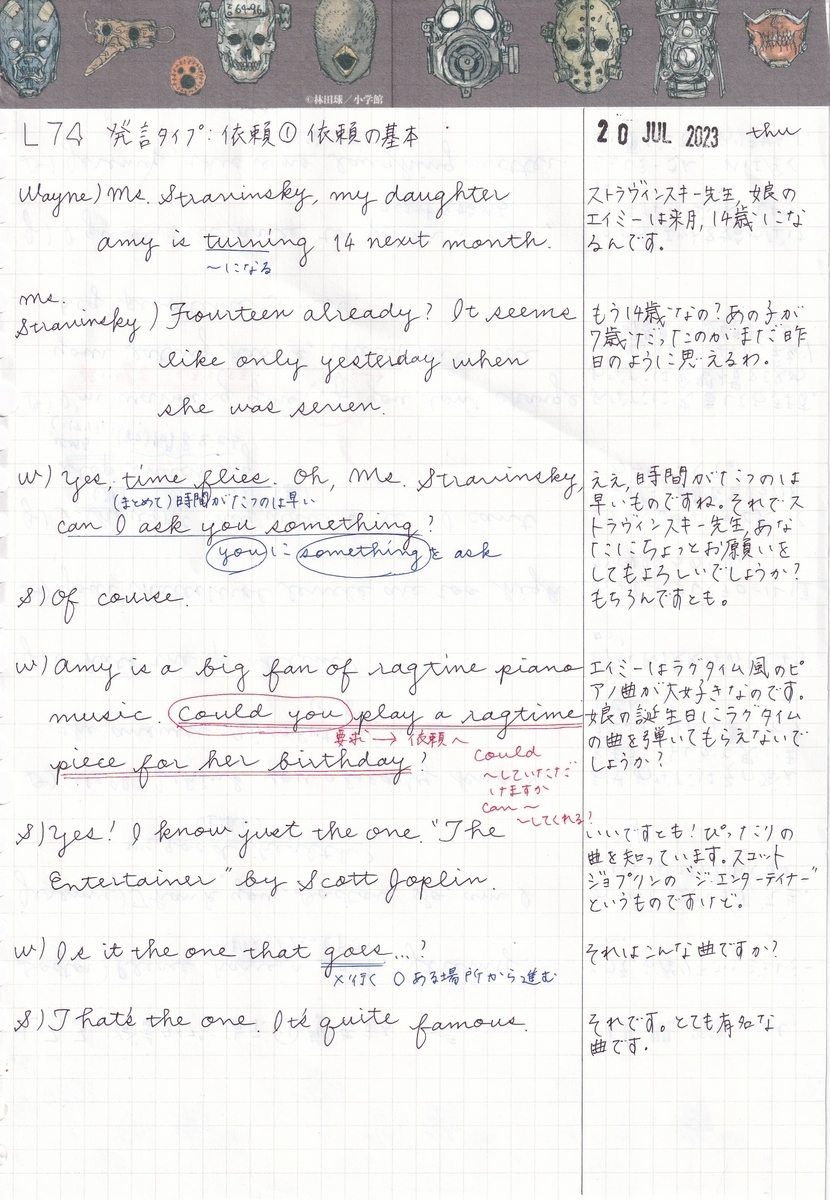 69-96
©林田球/小学館
L74 発言タイプ:依頼① 依頼の基本
20 JUL 2023 thu
Wayne) Ms. Stravinsky, my daughter
amy is turning 14 next month.
~になる
ストラヴィンスキー先生, 娘の
エイミーは来月, 14歳にな
るんです。
Ms.
Stravinsky) Fourteen already? It seems
like only yesterday when
she was seven.
もう14歳なの?あの子が
7歳だったのがまだ昨
日のように思えるわ。
W) Yes, time flies. Oh, Ms. Stravinsky,
(まとめて)時間がたつのは早い
can I ask you something?
youに somethingを ask
S) Of course.
ええ, 時間がたつのは
早いものですね。それでス
トラヴィンスキー先生, あな
たにちょっとお願いを
してもよろしいでしょうか?
もちろんですとも。
W) Amy is a big fan of ragtime piano
music. Could you play a ragtime
要求→依頼へ
piece for her birthday?
Could
~していただ
けますか
Can~
~してくれる?
エイミーはラグタイム風のピ
アノ曲が大好きなのです。
娘の誕生日にラグタイム
の曲を弾いてもらえないで
しょうか?
S) Yes! I know just the one. "The
Entertainer" by Scott Joplin.
いいですとも!ぴったりの
曲を知っています。スコット
ジョプリンの"ジ・エンターテイナー"
というものですけど。
W) Is it the one that goes...?
×行く ○ある場所から進む
それはこんな曲ですか?
S) That's the one. It's quite famous.
それです。とても有名な
曲です.